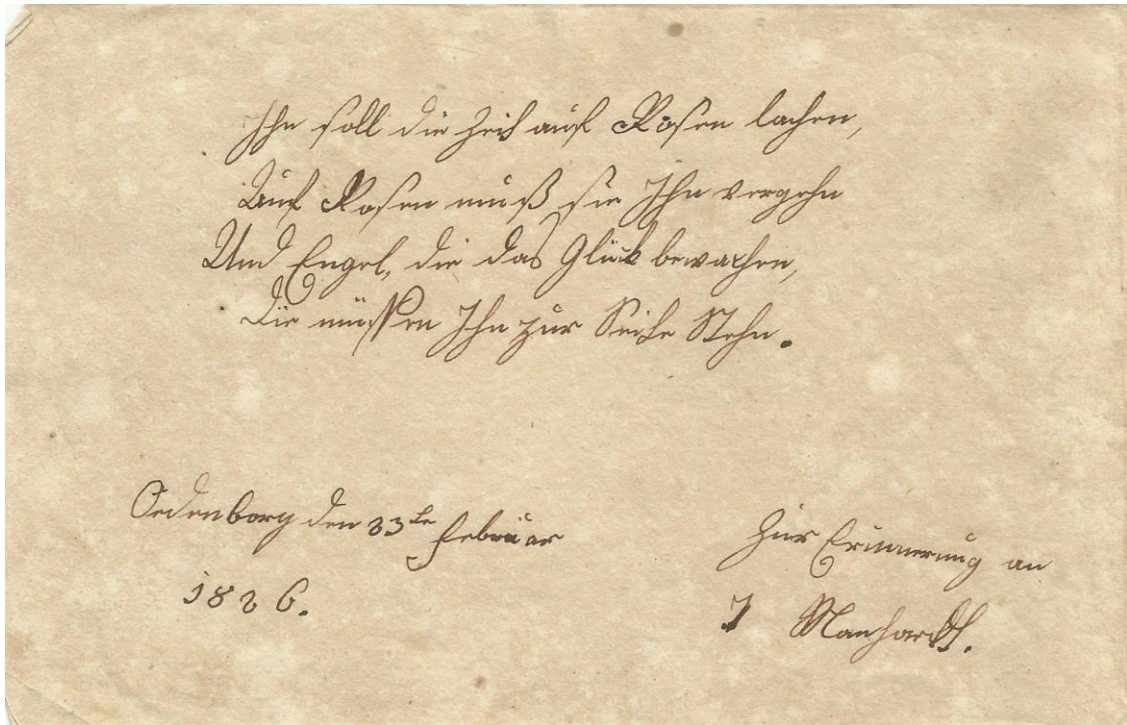 Ihn soll die Zeit auf Rosen lachen,
Auf Rosen muß sie Ihn vergehn
Und Engel, die das Glück bewachen,
Die müssen Ihn zur Seite Stehn.
Oedenborg den 23te Februar
1826.
Zur Erinnerung an
J Manhardt.